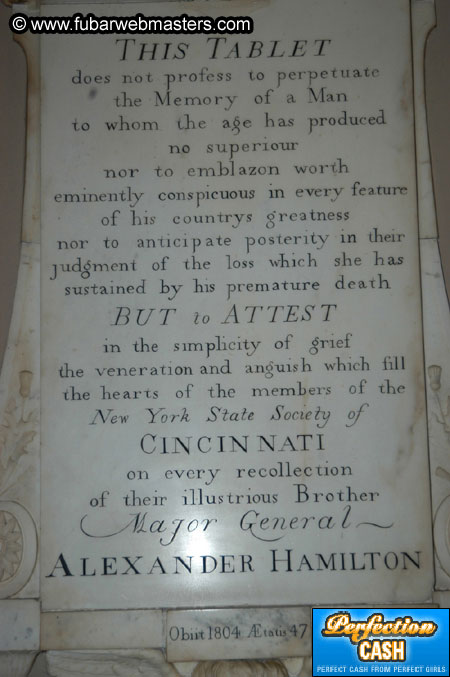 © www.fubarwebmasters.com
THIS TABLET
does not profess to perpetuate
the Memory of a Man
to whom the age has produced
no superiour
nor to emblazon worth
eminently conspicuous in every feature
of his countrys greatness
nor to anticipate posterity in their
judgment of the loss which she has
sustained by his premature death
BUT to ATTEST
in the simplicity of grief
the veneration and anguish which fill
the hearts of the members of the
New York State Society of
CINCINNATI
on every recollection
of their illustrious Brother
Major General
ALEXANDER HAMILTON
Obiit 1804 Ætatis 47
Perfection
CASH
PERFECT CASH FROM PERFECT GIRLS